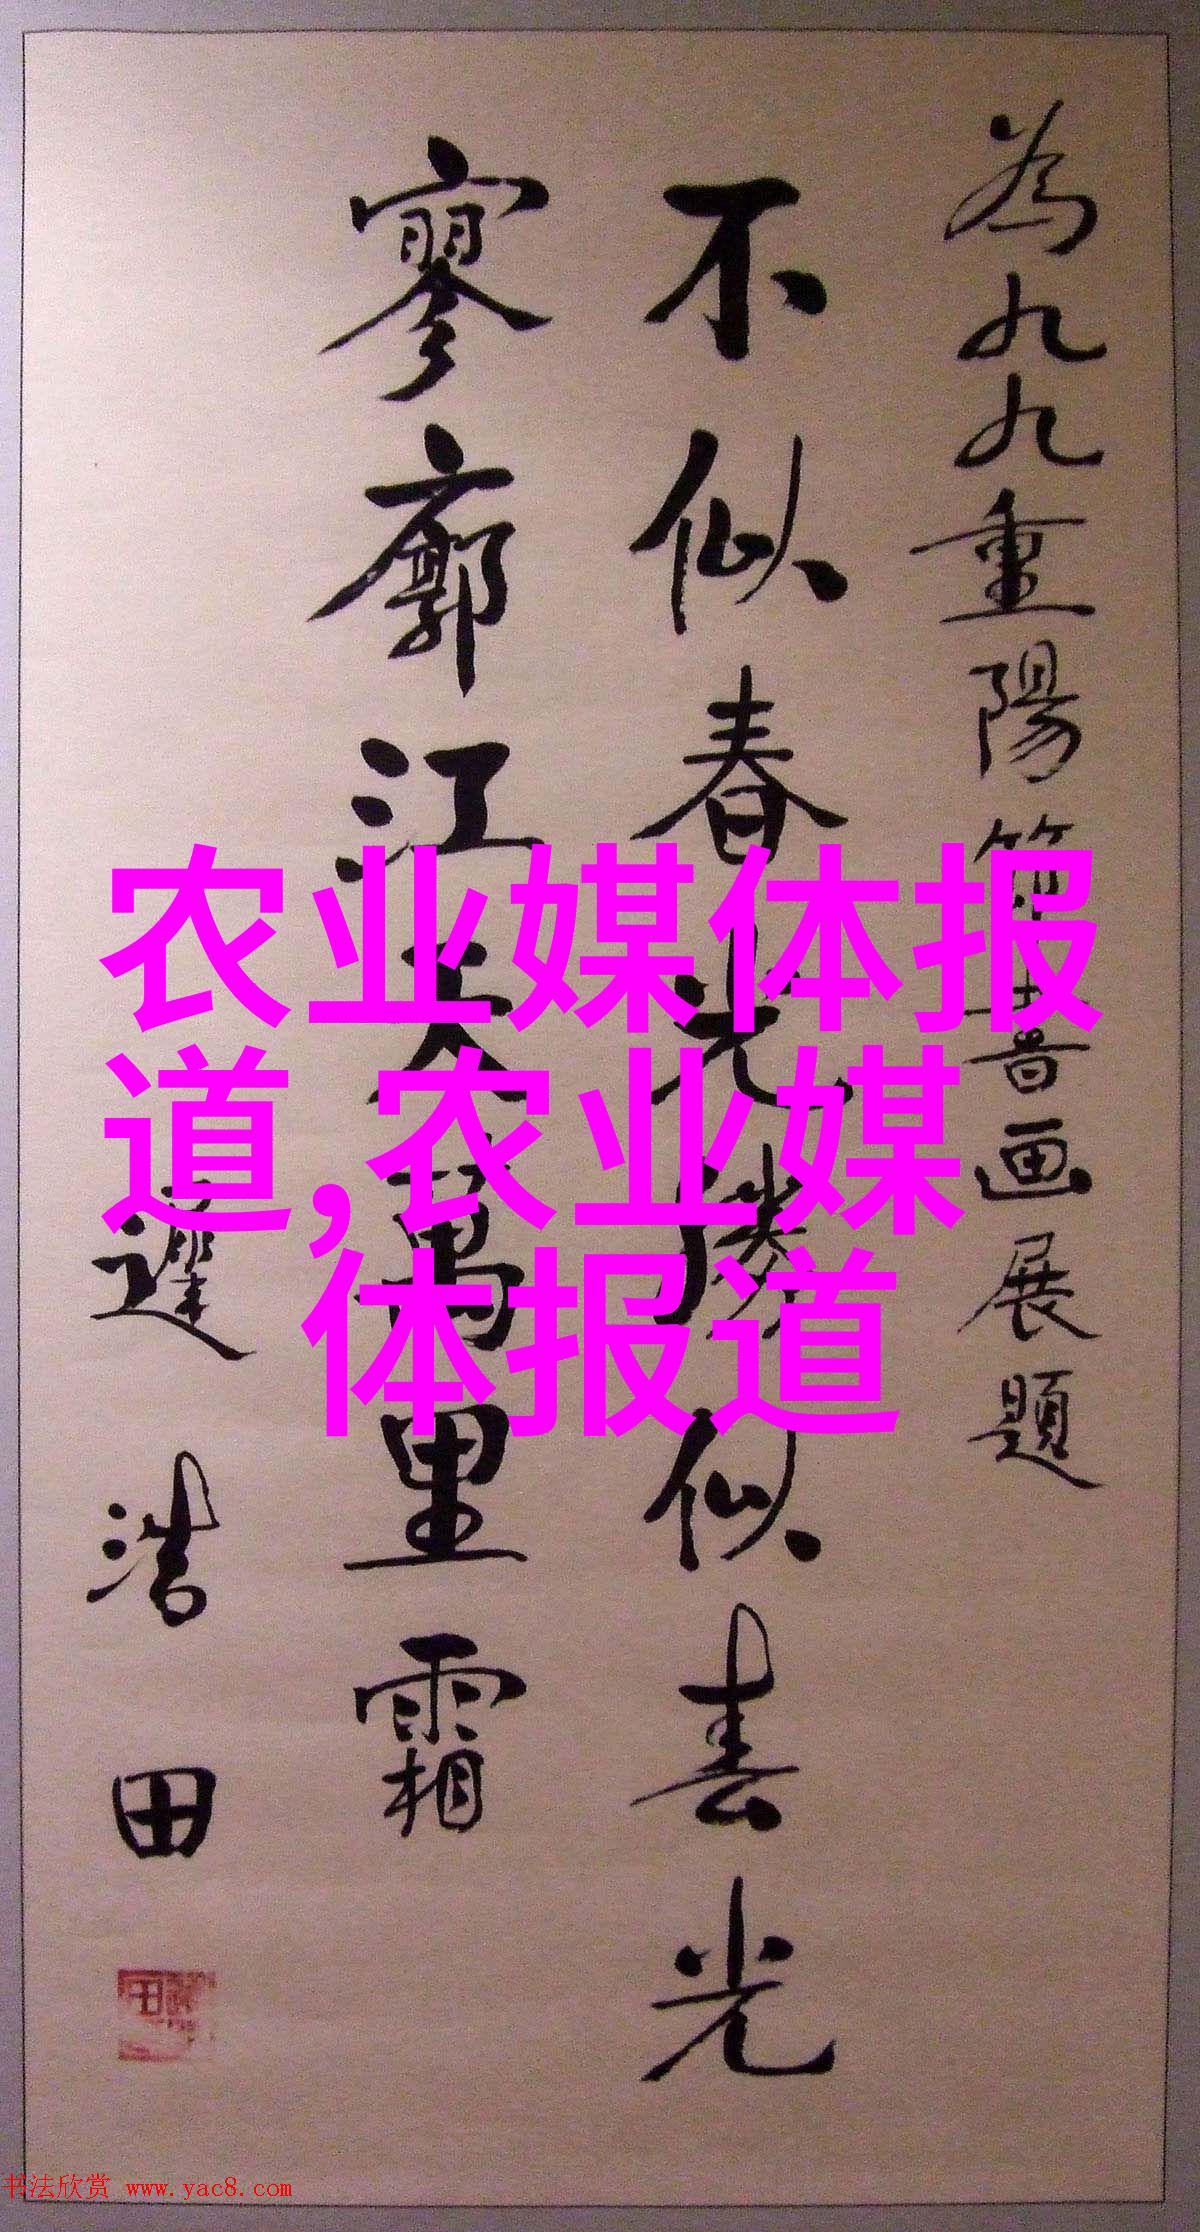 為九九重陽節書画展題
不似春光勝似春光
寥廓江天萬里霜
遲浩田
农业媒体报
道,农业媒
体报道
书法欣赏 www.yac8.com